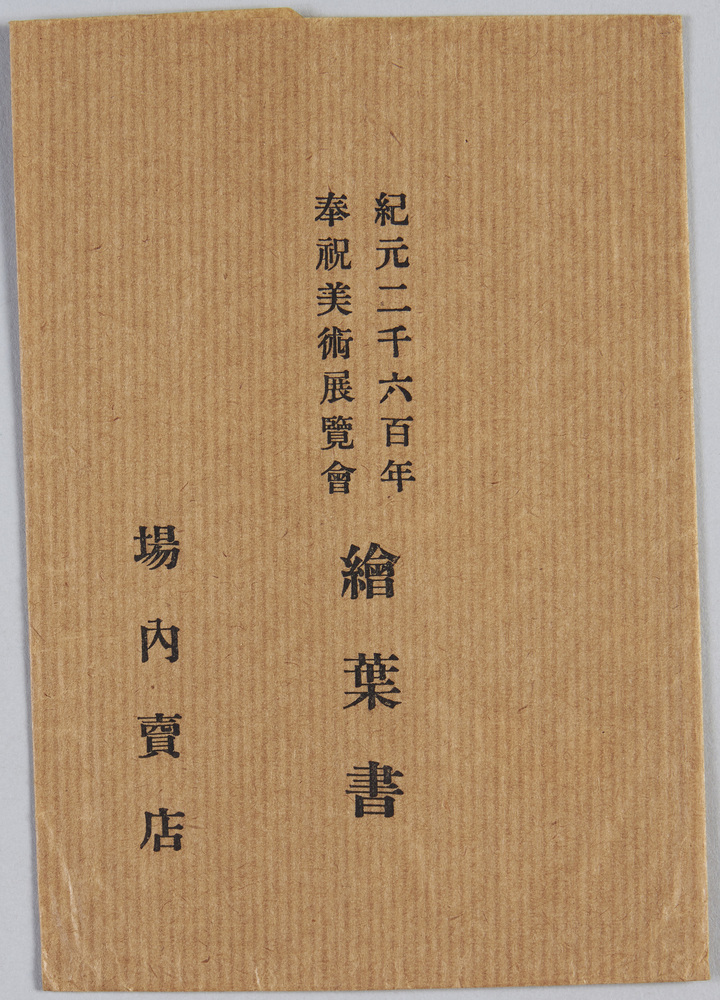 紀元二千六百年
奉祝美術展覽會
繪葉書
場內賣店